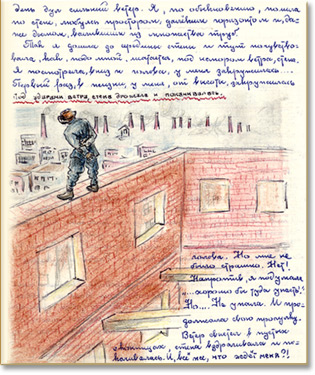 день дул сильный ветер. Я, по обыкновению, пошла
по стене, любуясь простором, далёким горизонтом и, да-
же дымом, валившим из множества труб.
Так я дошла до середины стены и тут почувство-
вала, как, подо мной, шатается, под напором ветра, стена.
Я посмотрела, вниз и голова, у меня закружилась...
Первый раз, в жизни, у меня, на высоте, закружилась
Под ударами ветра, стена дрожала и покачивалась.
голова. Но мне не
было страшно. Нет!
Напротив, я подумала
"...хорошо бы туда упасть".
Но.... Не упала. И про-
должала свою прогулку.
Ветер свистел в пустых
окнищах, стена вздрагивала и по-
качивалась. И, всё же, что ждёт меня?!